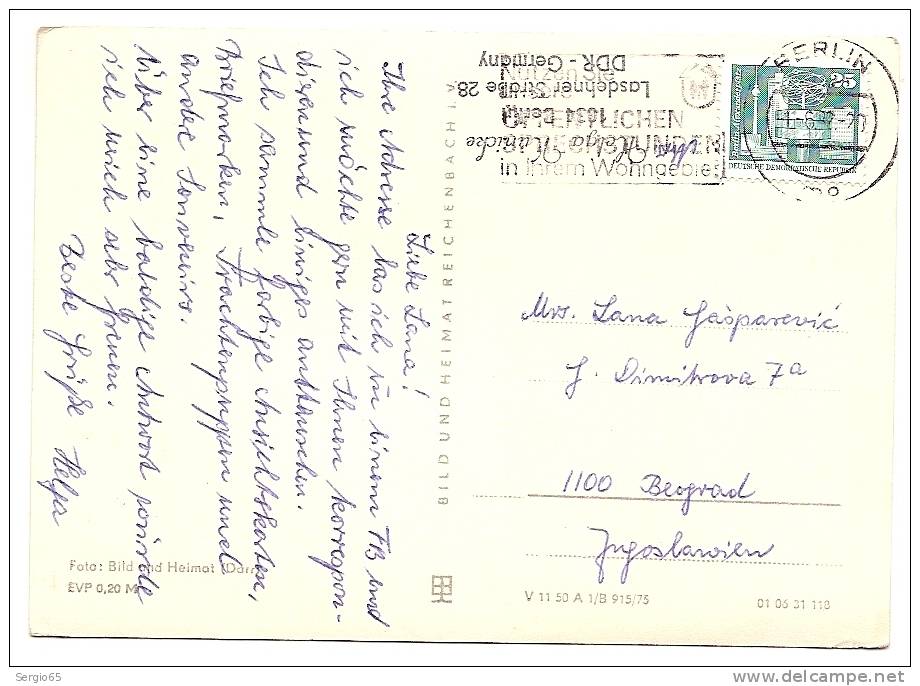 Liebe Lana!
Ihre Adresse las ich in einem FB und
ich möchte gern mit Ihnen korrespon-
dieren und einiges austauschen.
Ich sammle farbige Ansichtskarten,
Briefmarken, Trachtenpuppen und
andec Souveniers.
Über eine baldige Antwort würde
ich mich sehr freuen.
Beste Grüße Helga
BILD UND HEIMAT REICHENBACH I. V.
Foto: Bild und Heimat (Darr)
EVP 0,20 M
Helga Hanicke
1034 Berlin
Lasdehner Straße 28
DDR - Germany
Nutzen Sie
ÖFFENTLICHEN
in Ihrem Wohngebiet
BERLIN
25
DEUTSCHE DEMOKRATISCHE REPUBLIK
Mrs. Lana Gašparević
J. Dimitrova 7a
1100 Beograd
Jugoslawien
V 11 50 A 1/B 915/75
01 06 31 118
Sergio65
www.delcampe.net